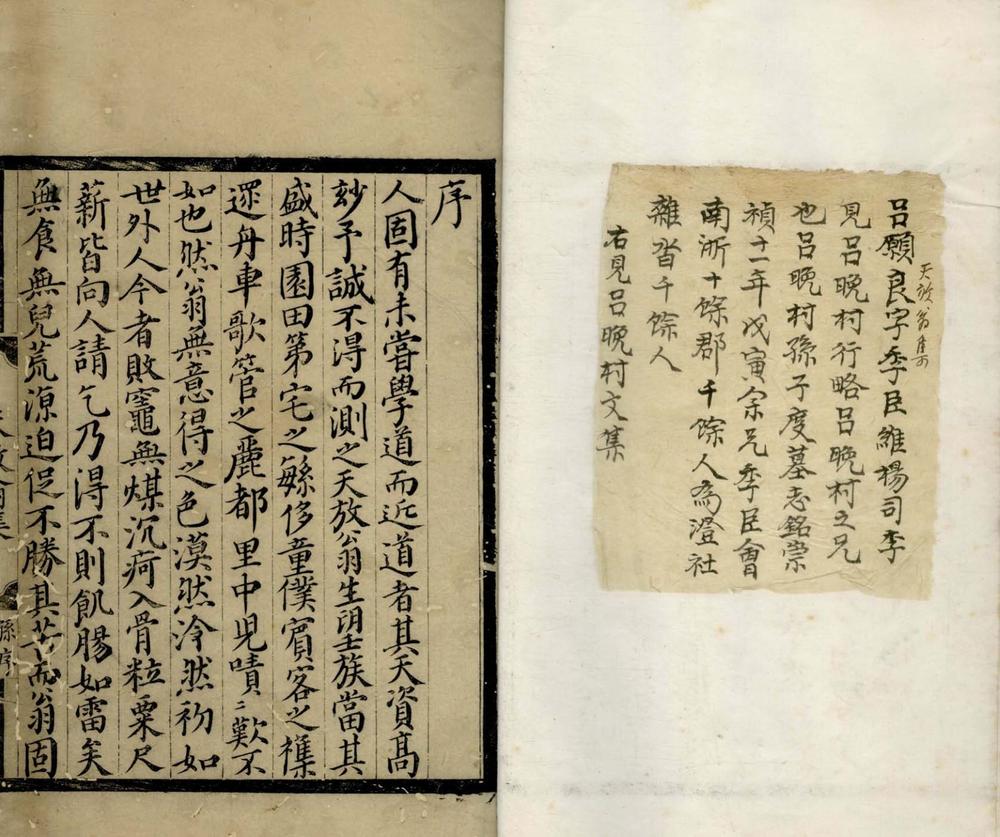 天放翁集
呂願良字季臣維揚司李
見呂晚村行略呂晚村之兄
也呂晚村孫子度墓志銘崇
禎十一年戊寅余兄季臣會
南浙十餘郡千餘人為澄社
雜沓千餘人
右見呂晚村文集
序
人固有未嘗學道而近道者其天資高
玅予誠不得而測之天放翁生朙壬族當其
盛時園田第宅之緐侈童僕賓客之襍
遝舟車歌管之麗都里中兒嘖〻歎不
如也然翁無意得之色漠然泠然礽如
世外人今者敗竈無煤沉疴入骨粒粟尺
薪皆向人請乞乃得不則飢腸如雷矣
無食無兒荒源迫促不勝其苦而翁固
孫序